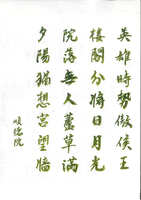 英雄時勢傲侯王
樓閣分日月光
院落無人草滿
夕陽猶想宮牆
院